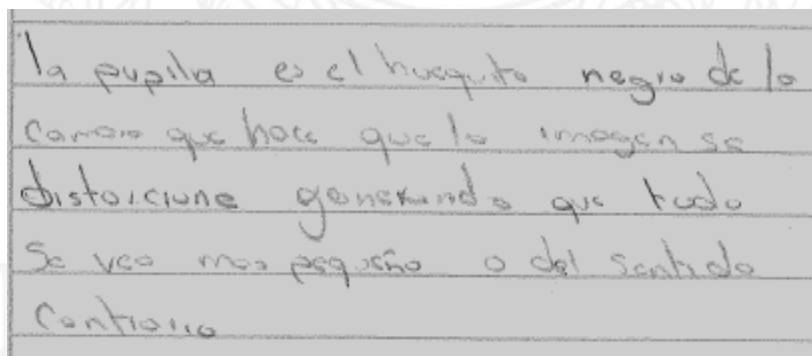 la pupila es el huequito negro de la
camara que hace que la imagen se
distorcione generando que todo
se vea mas pequeño o del sentido
contrario